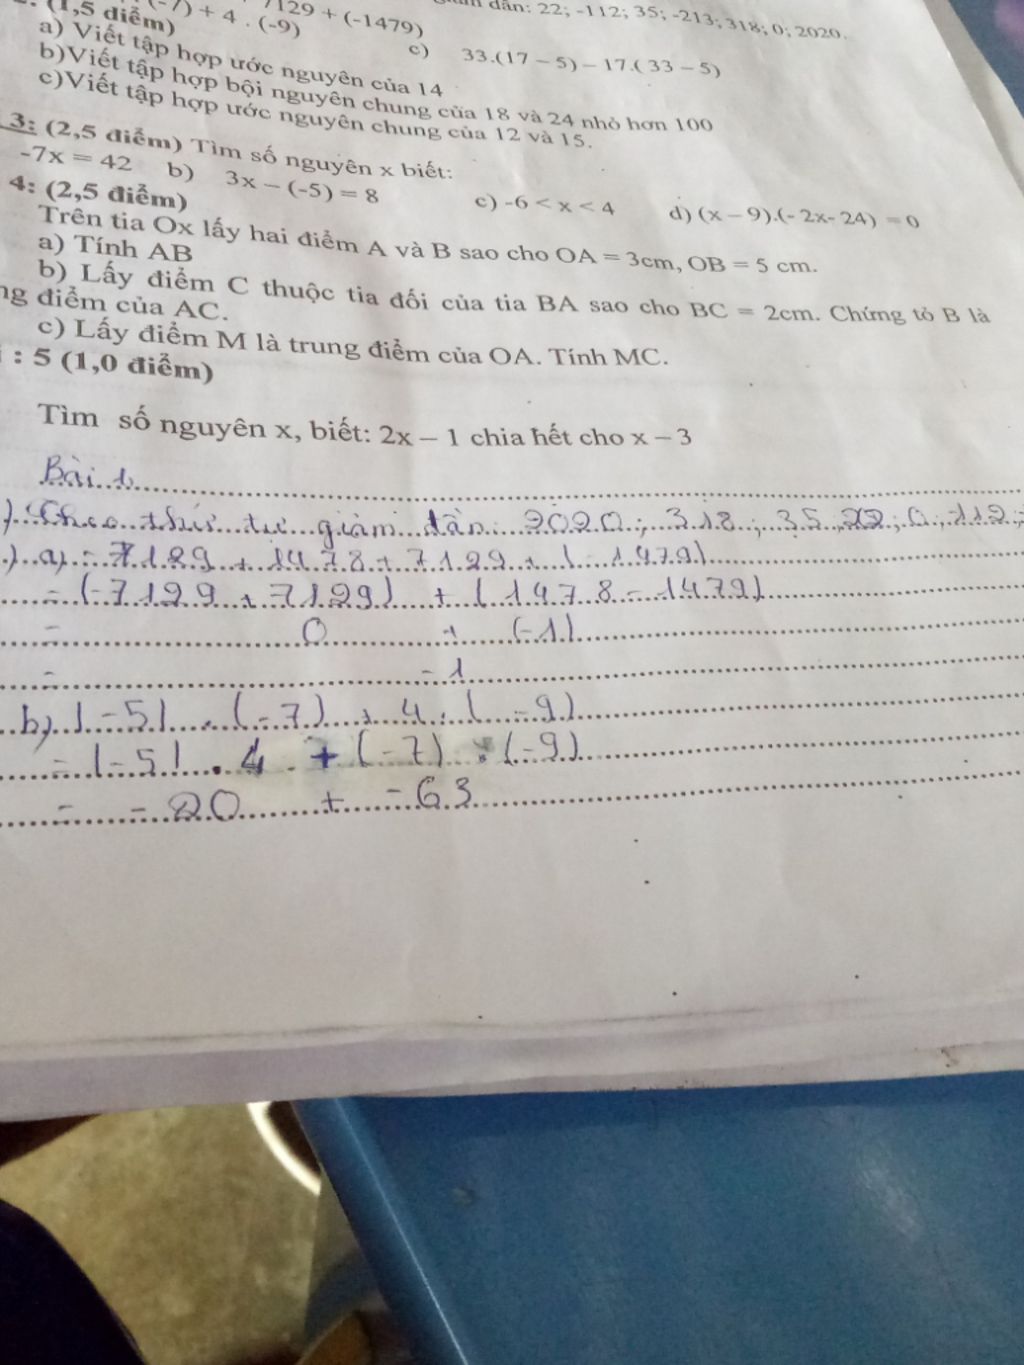 dần: 22; -112; 35; -213; 318; 0; 2020.
(-7) + 4 . (-9)
7129 + (-1479)
c) 33.(17 – 5) – 17.( 33 – 5)
(1,5 điểm)
a) Viết tập hợp ước nguyên của 14
b)Viết tập hợp bội nguyên chung của 18 và 24 nhỏ hơn 100
c)Viết tập hợp ước nguyên chung của 12 và 15.
3: (2,5 điểm) Tìm số nguyên x biết:
-7x = 42 b) 3x – (-5) = 8 c) -6 < x < 4 d) (x – 9).(- 2x- 24) = 0
4: (2,5 điểm)
Trên tia Ox lấy hai điểm A và B sao cho OA = 3cm, OB = 5 cm.
a) Tính AB
b) Lấy điểm C thuộc tia đối của tia BA sao cho BC = 2cm. Chứng tỏ B là
ng điểm của AC.
c) Lấy điểm M là trung điểm của OA. Tính MC.
: 5 (1,0 điểm)
Tìm số nguyên x, biết: 2x – 1 chia hết cho x – 3
Bài 1.
thứ tự giảm dần: 2020; 318; 35; 22; 0; -112;
a) -7129 + 1478 + 7129 + (-1479)
= (-7129 + 7129) + (1478 - 1479)
= 0 + (-1)
= -1
b) |-5| . (-7) + 4 . (-9)
= |-5| . 4 + (-7) . (-9)
= -20 + -63